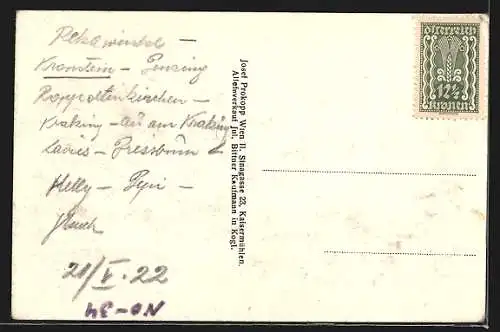 Rekawinkel –
Kronstein –
Rappoltenkirchen –
Kraking – Au am Kraking
– Pressbaum –
–
21/V. 22
NO-34
Josef Prokopp Wien II. Sinagasse 23, Kaisermühlen.
Alleinverkauf Jul. Bittner Kaufmann in Kogl.
Österreich
12½
Kronen